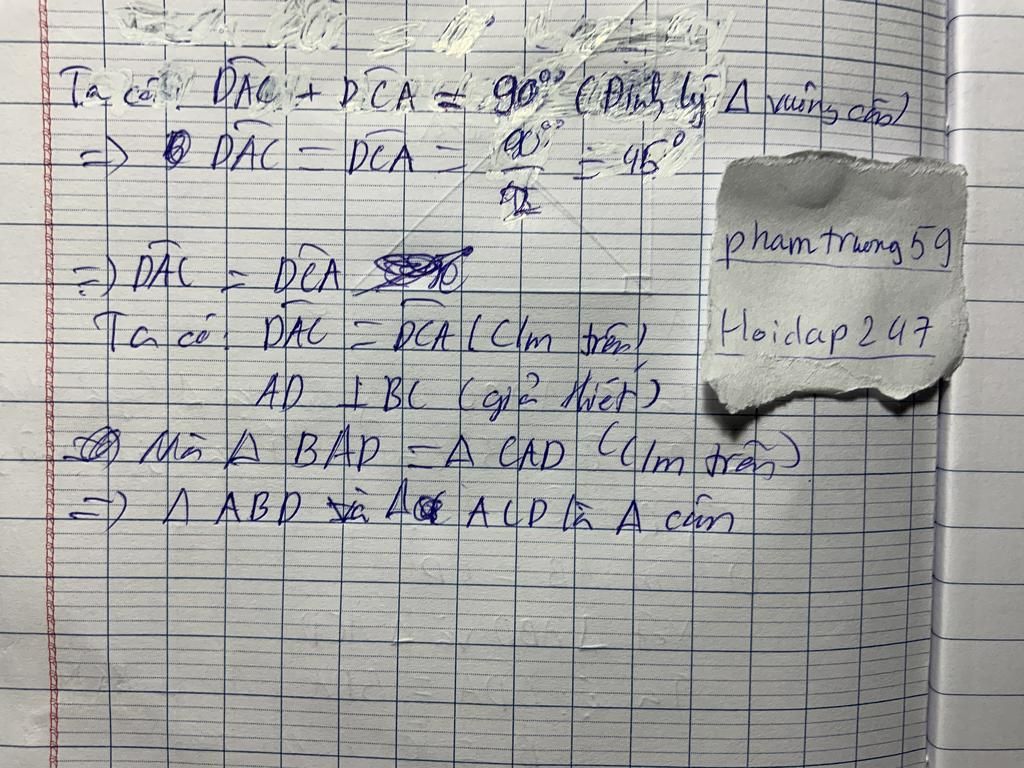 Ta có: DAC + DCA = 90° (Định lý Δ vuông cân)
=> DAC = DCA = 90°/2 = 45°
=> DAC = DCA
Ta có: DAC = DCA (C/m trên)
AD ⊥ BC (giả thiết)
Mà Δ BAD = Δ CAD (C/m trên)
=> Δ ABD và Δ ACD là Δ cân
phamtruong59
Hoidap247